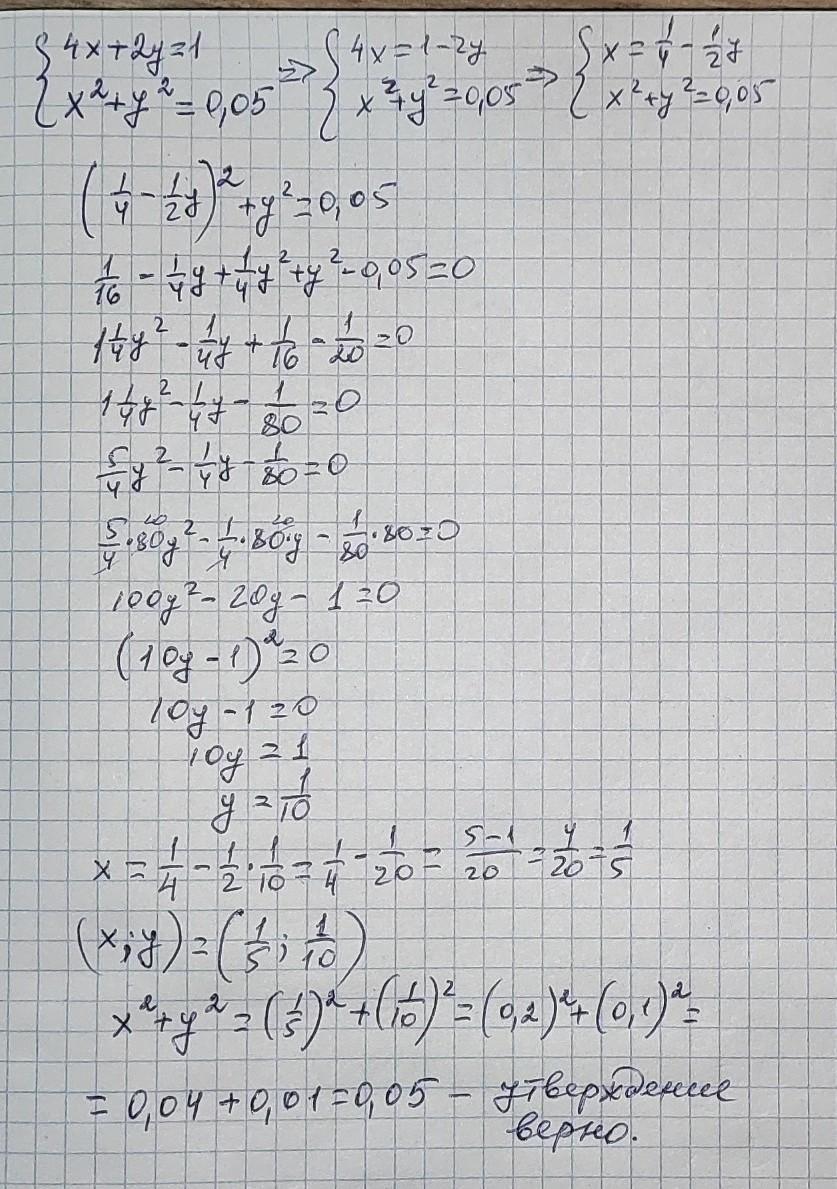 {4x+2y=1 => {4x=1-2y => {x=1/4-1/2y
{x²+y²=0,05 {x²+y²=0,05 {x²+y²=0,05
(1/4-1/2y)²+y²=0,05
1/16-1/4y+1/4y²+y²-0,05=0
1 1/4y²-1/4y+1/16-1/20=0
1 1/4y²-1/4y-1/80=0
5/4y²-1/4y-1/80=0
20 20
5/4·80y²-1/4·80·y-1/80·80=0
100y²-20y-1=0
(10y-1)²=0
10y-1=0
10y=1
y=1/10
x=1/4-1/2·1/10=1/4-1/20=(5-1)/20=4/20=1/5
(x;y)=(1/5;1/10)
x²+y²=(1/5)²+(1/10)²=(0,2)²+(0,1)²=
=0,04+0,01=0,05 - утверждение
верно.